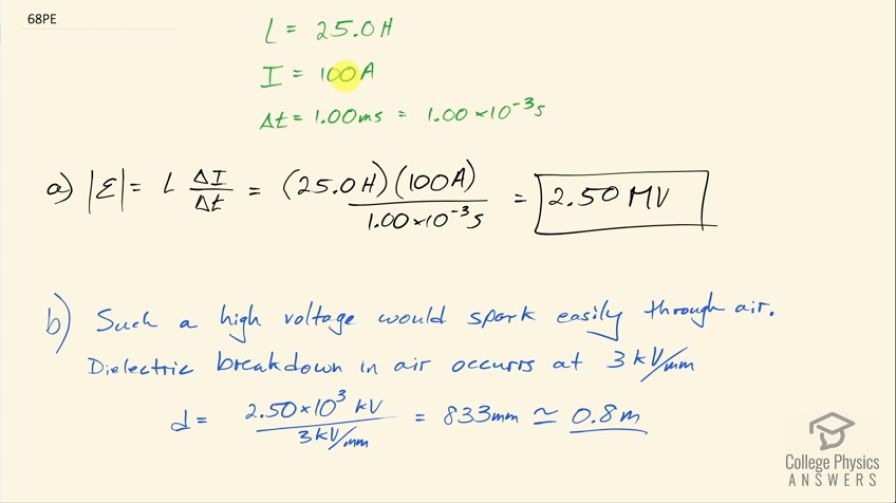 68PE
L = 25.0H
I = 100A
Δt = 1.00ms = 1.00×10⁻³s
a) |ℰ| = L ΔI/Δt = (25.0H)(100A)/1.00×10⁻³s = 2.50 MV
b) Such a high voltage would spark easily through air.
Dielectric breakdown in air occurrs at 3 kV/mm
d = 2.50×10³ kV / 3kV/mm = 833mm ≃ 0.8m
College Physics
ANSWERS